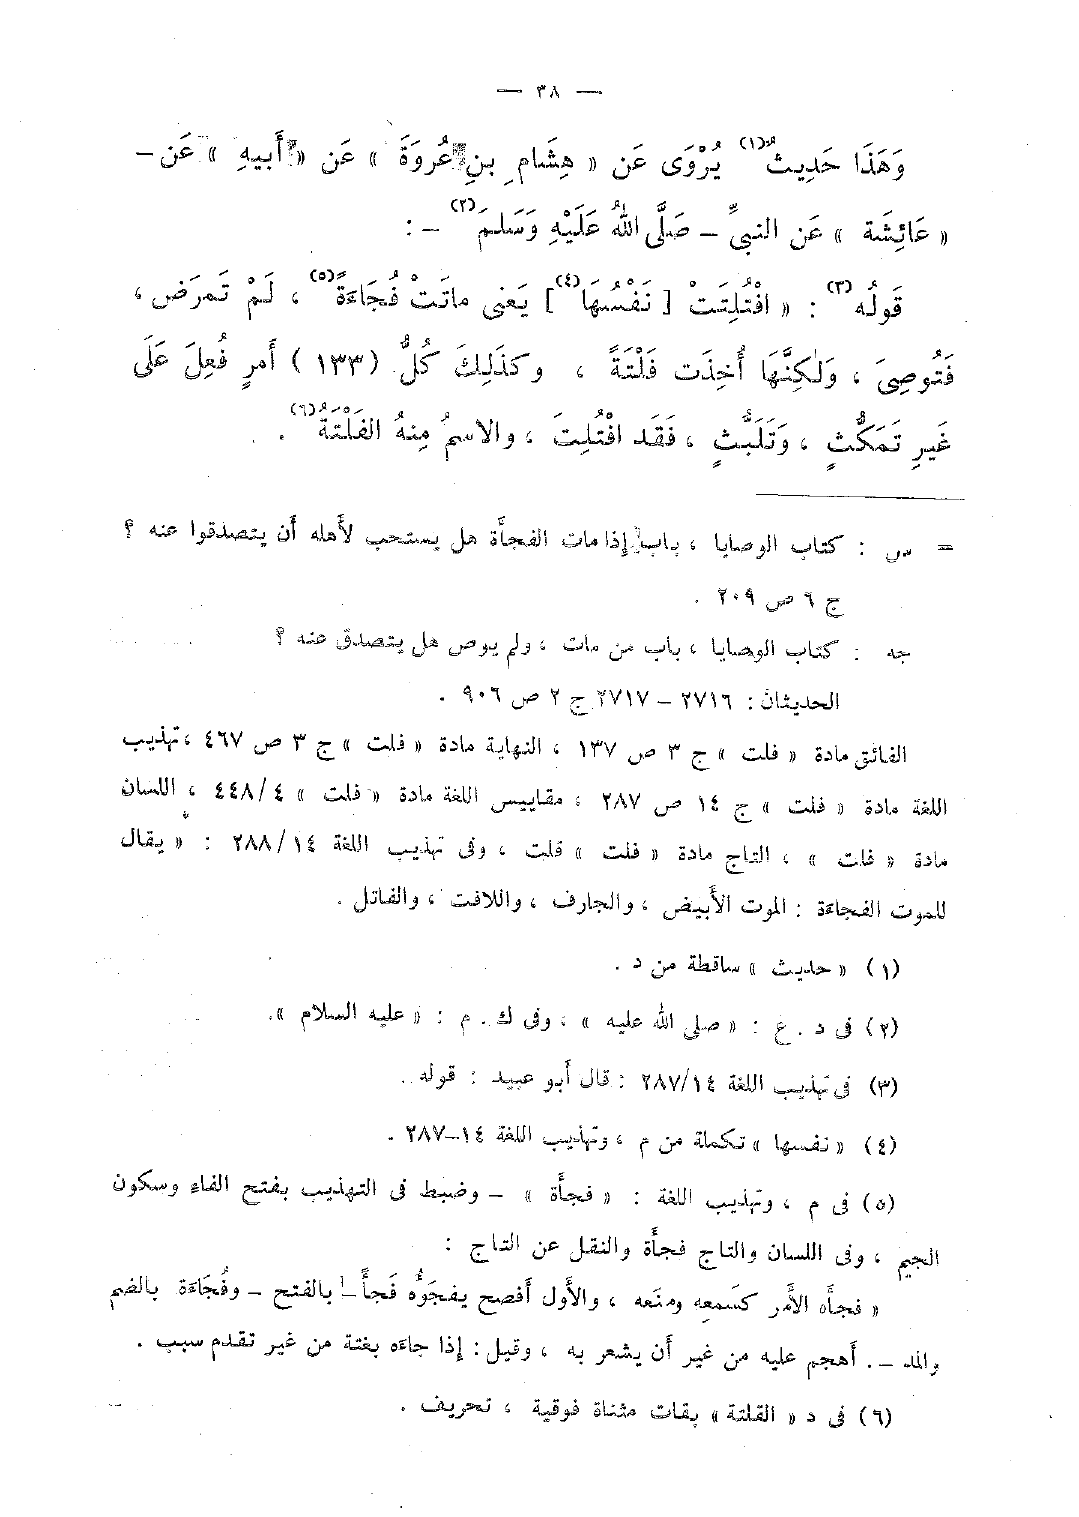 — ٣٨ —
وَهَذَا حَدِيثٌ(١) يُرْوَى عَن « هِشَامِ بنِ عُروَةَ » عَن « أَبيهِ » عَن –
« عَائِشَة » عَن النبىِّ – صَلَّى اللهُ عَلَيْهِ وَسَلمَ(٢) – :
قَولُه(٣) : « افْتُلِتَتْ [ نَفْسُهَا(٤) ] يَعنى ماتَتْ فُجَاءَةً(٥) ، لَمْ تَمرَض ،
فَتُوصِىَ ، وَلكِنَّهَا أُخِذَت فَلْتَةً ، وكَذَلِكَ كُلُّ (١٣٣) أَمرٍ فُعِلَ عَلَى
غَيرِ تَمَكُّثٍ ، وَتَلَبُّثٍ ، فَقَد افْتُلِتَ ، والاسمُ مِنهُ الفَلْتَةُ(٦) .
= س : كتاب الوصايا ، باب إذا مات الفجأة هل يستحب لأهله أن يتصدقوا عنه ؟
ج ٦ ص ٢٠٩ .
جه : كتاب الوصايا ، باب من مات ، ولم يوص هل يتصدق عنه ؟
الحديثان : ٢٧١٦ – ٢٧١٧ ج ٢ ص ٩٠٦ .
الفائق مادة « فلت » ج ٣ ص ١٣٧ ، النهاية مادة « فلت » ج ٣ ص ٤٦٧ ، تهذيب
اللغة مادة « فلت » ج ١٤ ص ٢٨٧ ، مقاييس اللغة مادة « فلت » ٤/٤٤٨ ، اللسان
مادة « فلت » ، التاج مادة « فلت » فلت ، وفى تهذيب اللغة ١٤/٢٨٨ : « يقال
للموت الفجاءة : الموت الأبيض ، والجارف ، واللافت ، والفاتل .
(١) « حديث » ساقطة من د .
(٢) فى د . ع : « صلى الله عليه » ، وفى ك . م : « عليه السلام ».
(٣) فى تهذيب اللغة ١٤/٢٨٧ : قال أبو عبيد : قوله ..
(٤) « نفسها » تكملة من م ، وتهذيب اللغة ١٤–٢٨٧ .
(٥) فى م ، وتهذيب اللغة : « فجأة » – وضبط فى التهذيب بفتح الفاء وسكون
الجيم ، وفى اللسان والتاج فجأة والنقل عن التاج :
« فجأه الأمر كسَمعه ومنَعه ، والأول أفصح يفجَؤُه فَجأً – بالفتح – وفُجَاءَة بالضم
والمد – . أهجم عليه من غير أن يشعر به ، وقيل : إذا جاءه بغتة من غير تقدم سبب .
(٦) فى د « القلتة » بقات مثناة فوقية ، تحريف .